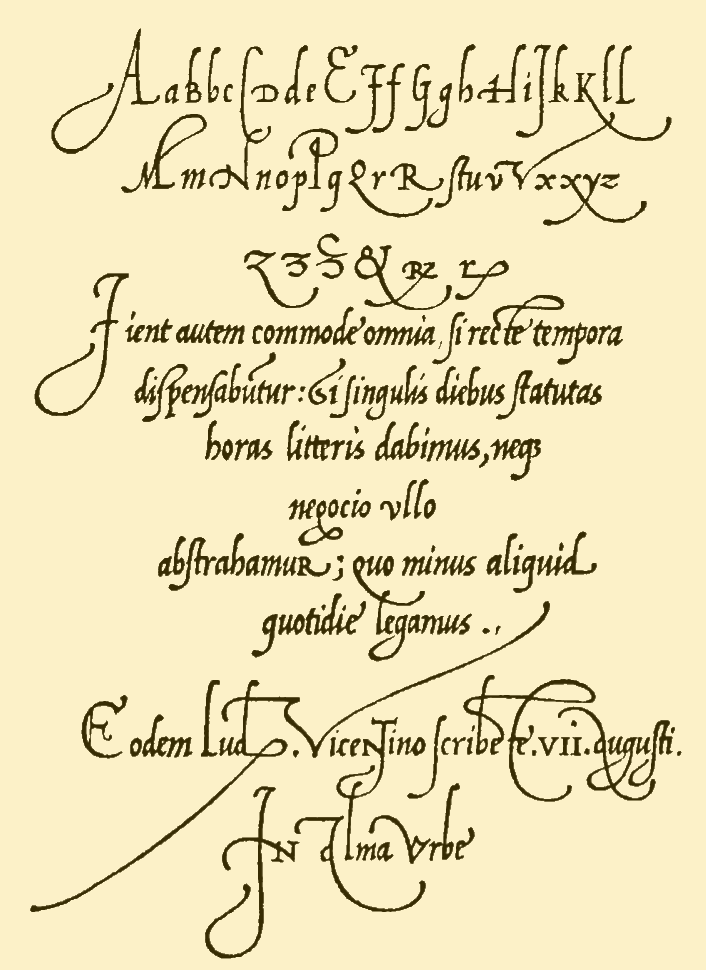 AaBbcCDdeEFfGghHiJkKlL
MmNnopPqQrRſtuvVxxyz
Zzȝ& Rz rp
Fient autem commode omnia, ſi recte tempora
diſpenſabuntur: Et ſi ſingulis diebus ſtatutas
horas litteris dabimus, neqȝ
negocio vllo
abſtrahamuR; quo minus aliquid
quotidie legamus .,
Eodem Lud. ViceNtino ſcribeTe. VII. auguſti.
IN alma Vrbe